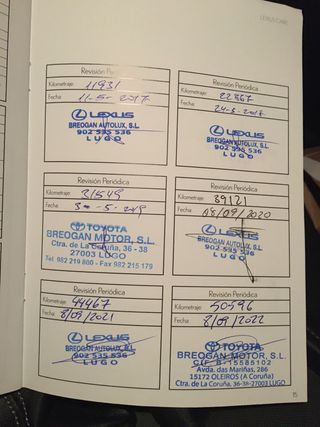 LEXUS CARE
Revisión Periódica
Kilometraje: 11931
Fecha: 11-5-2017
LEXUS
BREOGAN AUTOLUX, S.L.
902 535 536
LUGO
Revisión Periódica
Kilometraje: 22867
Fecha:
LEXUS
BREOGAN AUTOLUX, S.L.
902 535 536
LUGO
Revisión Periódica
Kilometraje: 31549
Fecha:
TOYOTA
BREOGAN MOTOR, S.L.
Ctra. de La Coruña, 36 - 38
27003 LUGO
Tel. 982 219 800 - Fax 982 215 179
Revisión Periódica
Kilometraje: 39121
Fecha: 08/09/2020
LEXUS
BREOGAN AUTOLUX, S.L.
902 535 536
LUGO
Revisión Periódica
Kilometraje: 44467
Fecha: 8/09/2021
LEXUS
BREOGAN AUTOLUX, S.L.
902 535 536
LUGO
Revisión Periódica
Kilometraje: 50596
Fecha: 8/09/2022
TOYOTA
BREOGAN MOTOR, S.L.
CIF B-15585102
Avda. das Mariñas, 286
15172 OLEIROS (A Coruña)
Ctra. de La Coruña, 36-38-27003 LUGO
15